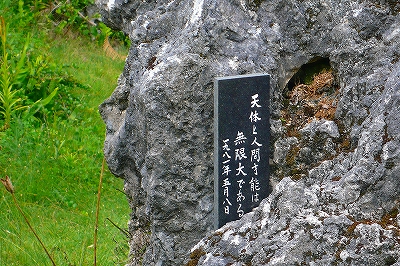 天体と人間才能は
無限大である
一九八二年五月八日